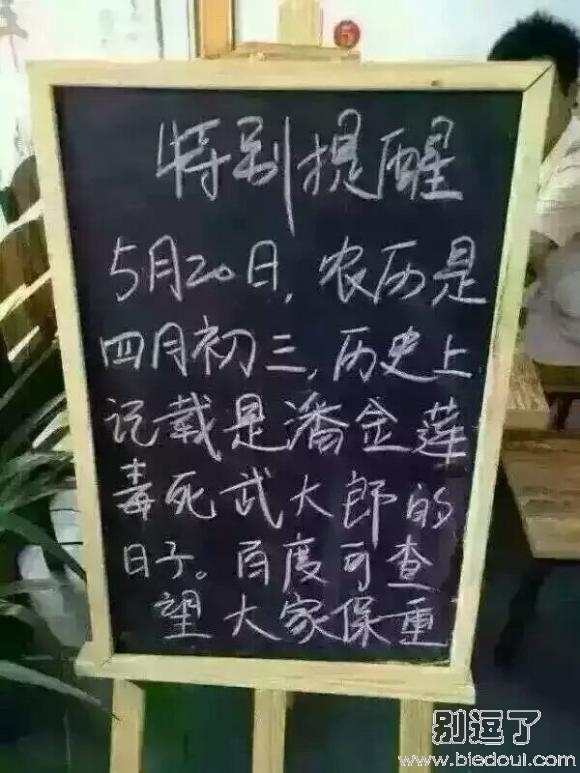 特别提醒
5月20日,农历是
四月初三,历史上
记载是潘金莲
毒死武大郎的
日子。百度可查
望大家保重
别逗了
www.biedoul.com